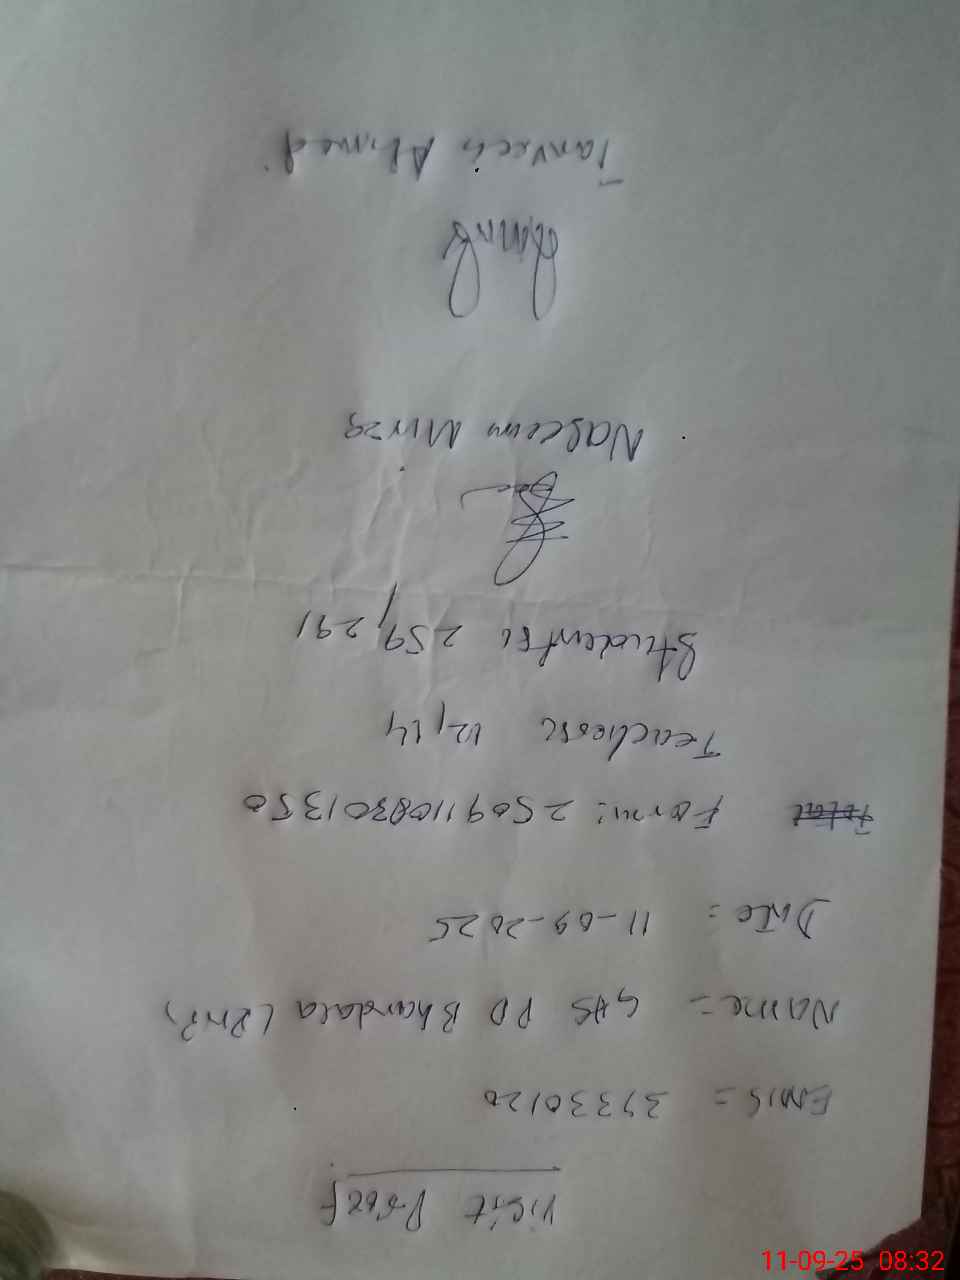 Visit Proof
EMIS = 37330120
Name = GHS PD Bhandala (RWP)
Date = 11-09-2025
Form: 25091108301350
Teachers: 12,14
Students: 259,291
Naseem Mirza
Tanveer Ahmed
11-09-25 08:32